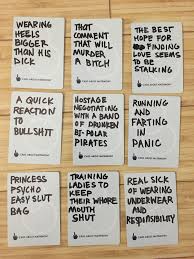 WEARING
HEELS
BIGGER
THAN HIS
DICK
THAT
COMMENT
THAT WILL
MURDER
A BITCH
THE BEST
HOPE FOR
FINDING
LOVE SEEMS
TO BE
STALKING
A QUICK
REACTION
TO
BULLSHIT
HOSTAGE
NEGOTIATING
WITH A BAND
OF DRUNKEN
BI-POLAR
PIRATES
RUNNING
AND
FARTING
IN
PANIC
PRINCESS
PSYCHO
EASY SLUT
BAG
TRAINING
LADIES TO
KEEP THEIR
WHORE
MOUTH
SHUT
REAL SICK
OF WEARING
UNDERWEAR
AND
RESPONSIBILITY